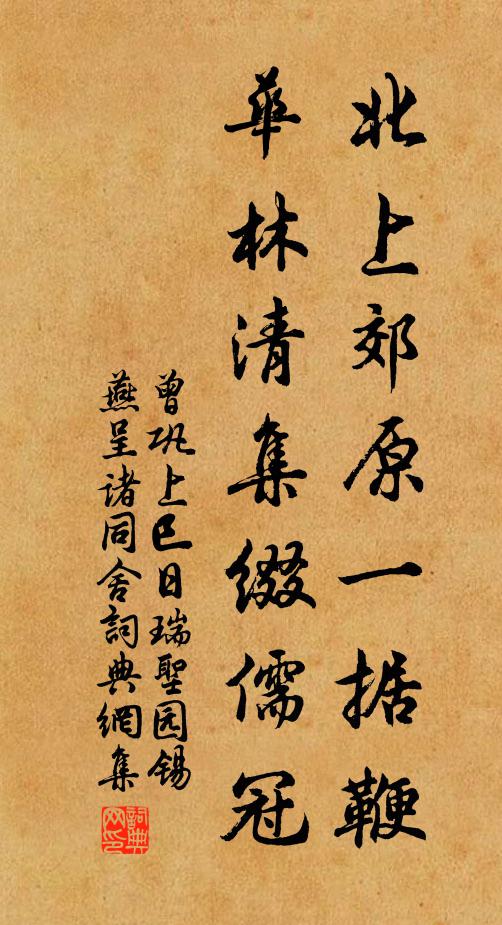 北上郊原一据鞭
華林清集綴儒冠
曾巩上巳日瑞聖园锡
燕呈诸同舍詞典網集
詞典
网印